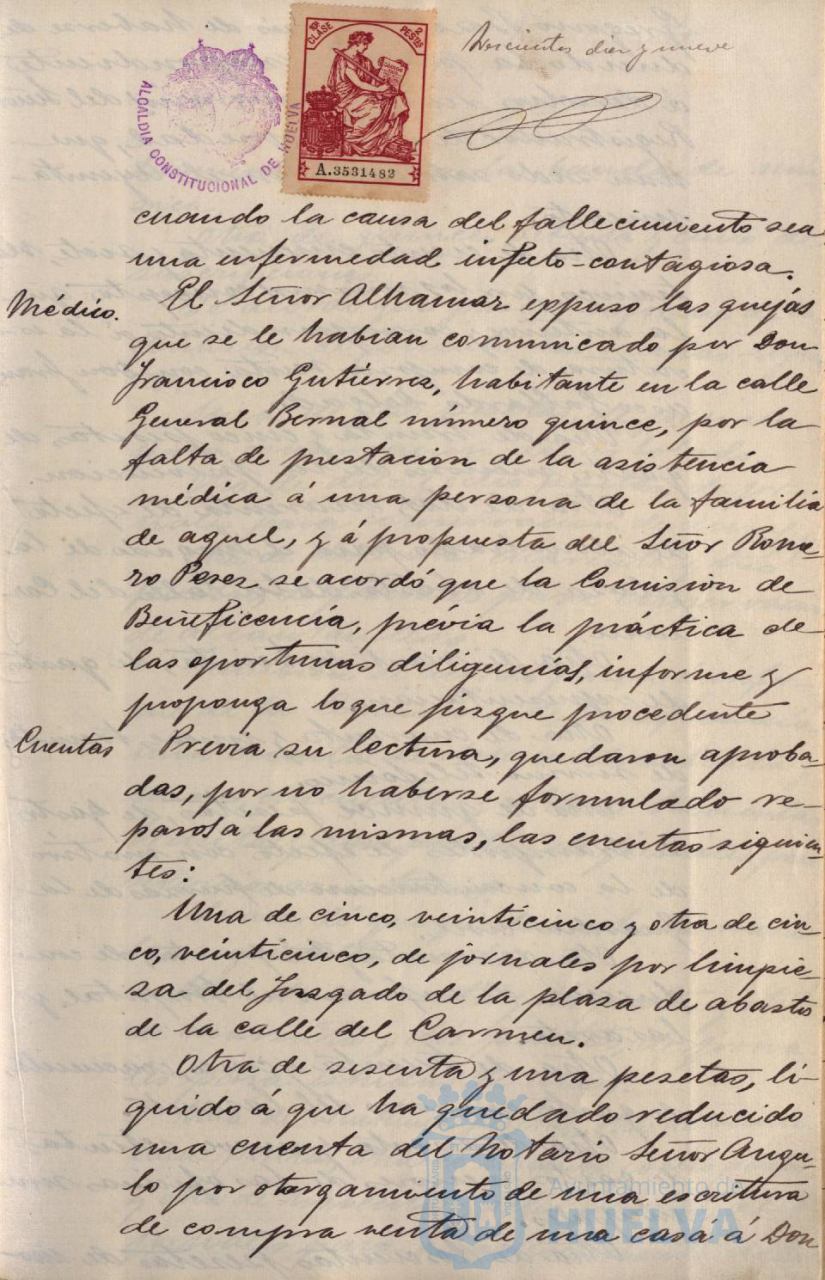 ALCALDIA CONSTITUCIONAL DE HUELVA
10ª CLASE 2 PESTAS
A.3531483
Doscientos diez y nueve
cuando la causa del fallecimiento sea
una enfermedad infecto-contagiosa.
Médico. El Señor Alhamar expuso las quejas
que se le habian comunicado por Don
Francisco Gutiérrez, habitante en la calle
General Bernal número quince, por la
falta de prestacion de la asistencia
médica á una persona de la familia
de aquel, y á propuesta del Señor Rome-
ro Perez se acordó que la Comision de
Beneficencia, prévia la práctica de
las oportunas diligencias, informe y
proponga lo que juzgue procedente
Cuentas Previa su lectura, quedaron aproba-
das, por no haberse formulado re-
paros á las mismas, las cuentas siguien-
tes:
Una de cinco, veinticinco y otra de cin-
co, veinticinco, de jornales por limpie-
za del Juzgado de la plaza de abastos
de la calle del Carmen.
Otra de sesenta y una pesetas, li-
quido á que ha quedado reducido
una cuenta del Notario Señor Angu-
lo por otorgamiento de una escritura
de compra venta de una casa á Don
Ayuntamiento de
HUELVA